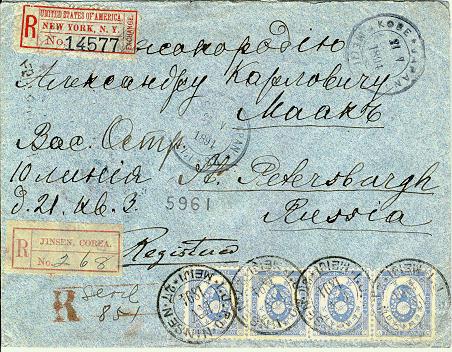 UNITED STATES OF AMERICA
NEW YORK, N. Y.
No. 14577
EXCHANGE
KOBE JAPAN
MEIJI
1891
Александру Карловичу
Маакъ
1891
Вас. Остр.
10 линія St. Petersburgh
д. 21. кв. 3. Russia
5961
R
JINSEN, COREA.
No. 268
Registered
R
I.J.P.O.
JINSEN
MEIJI